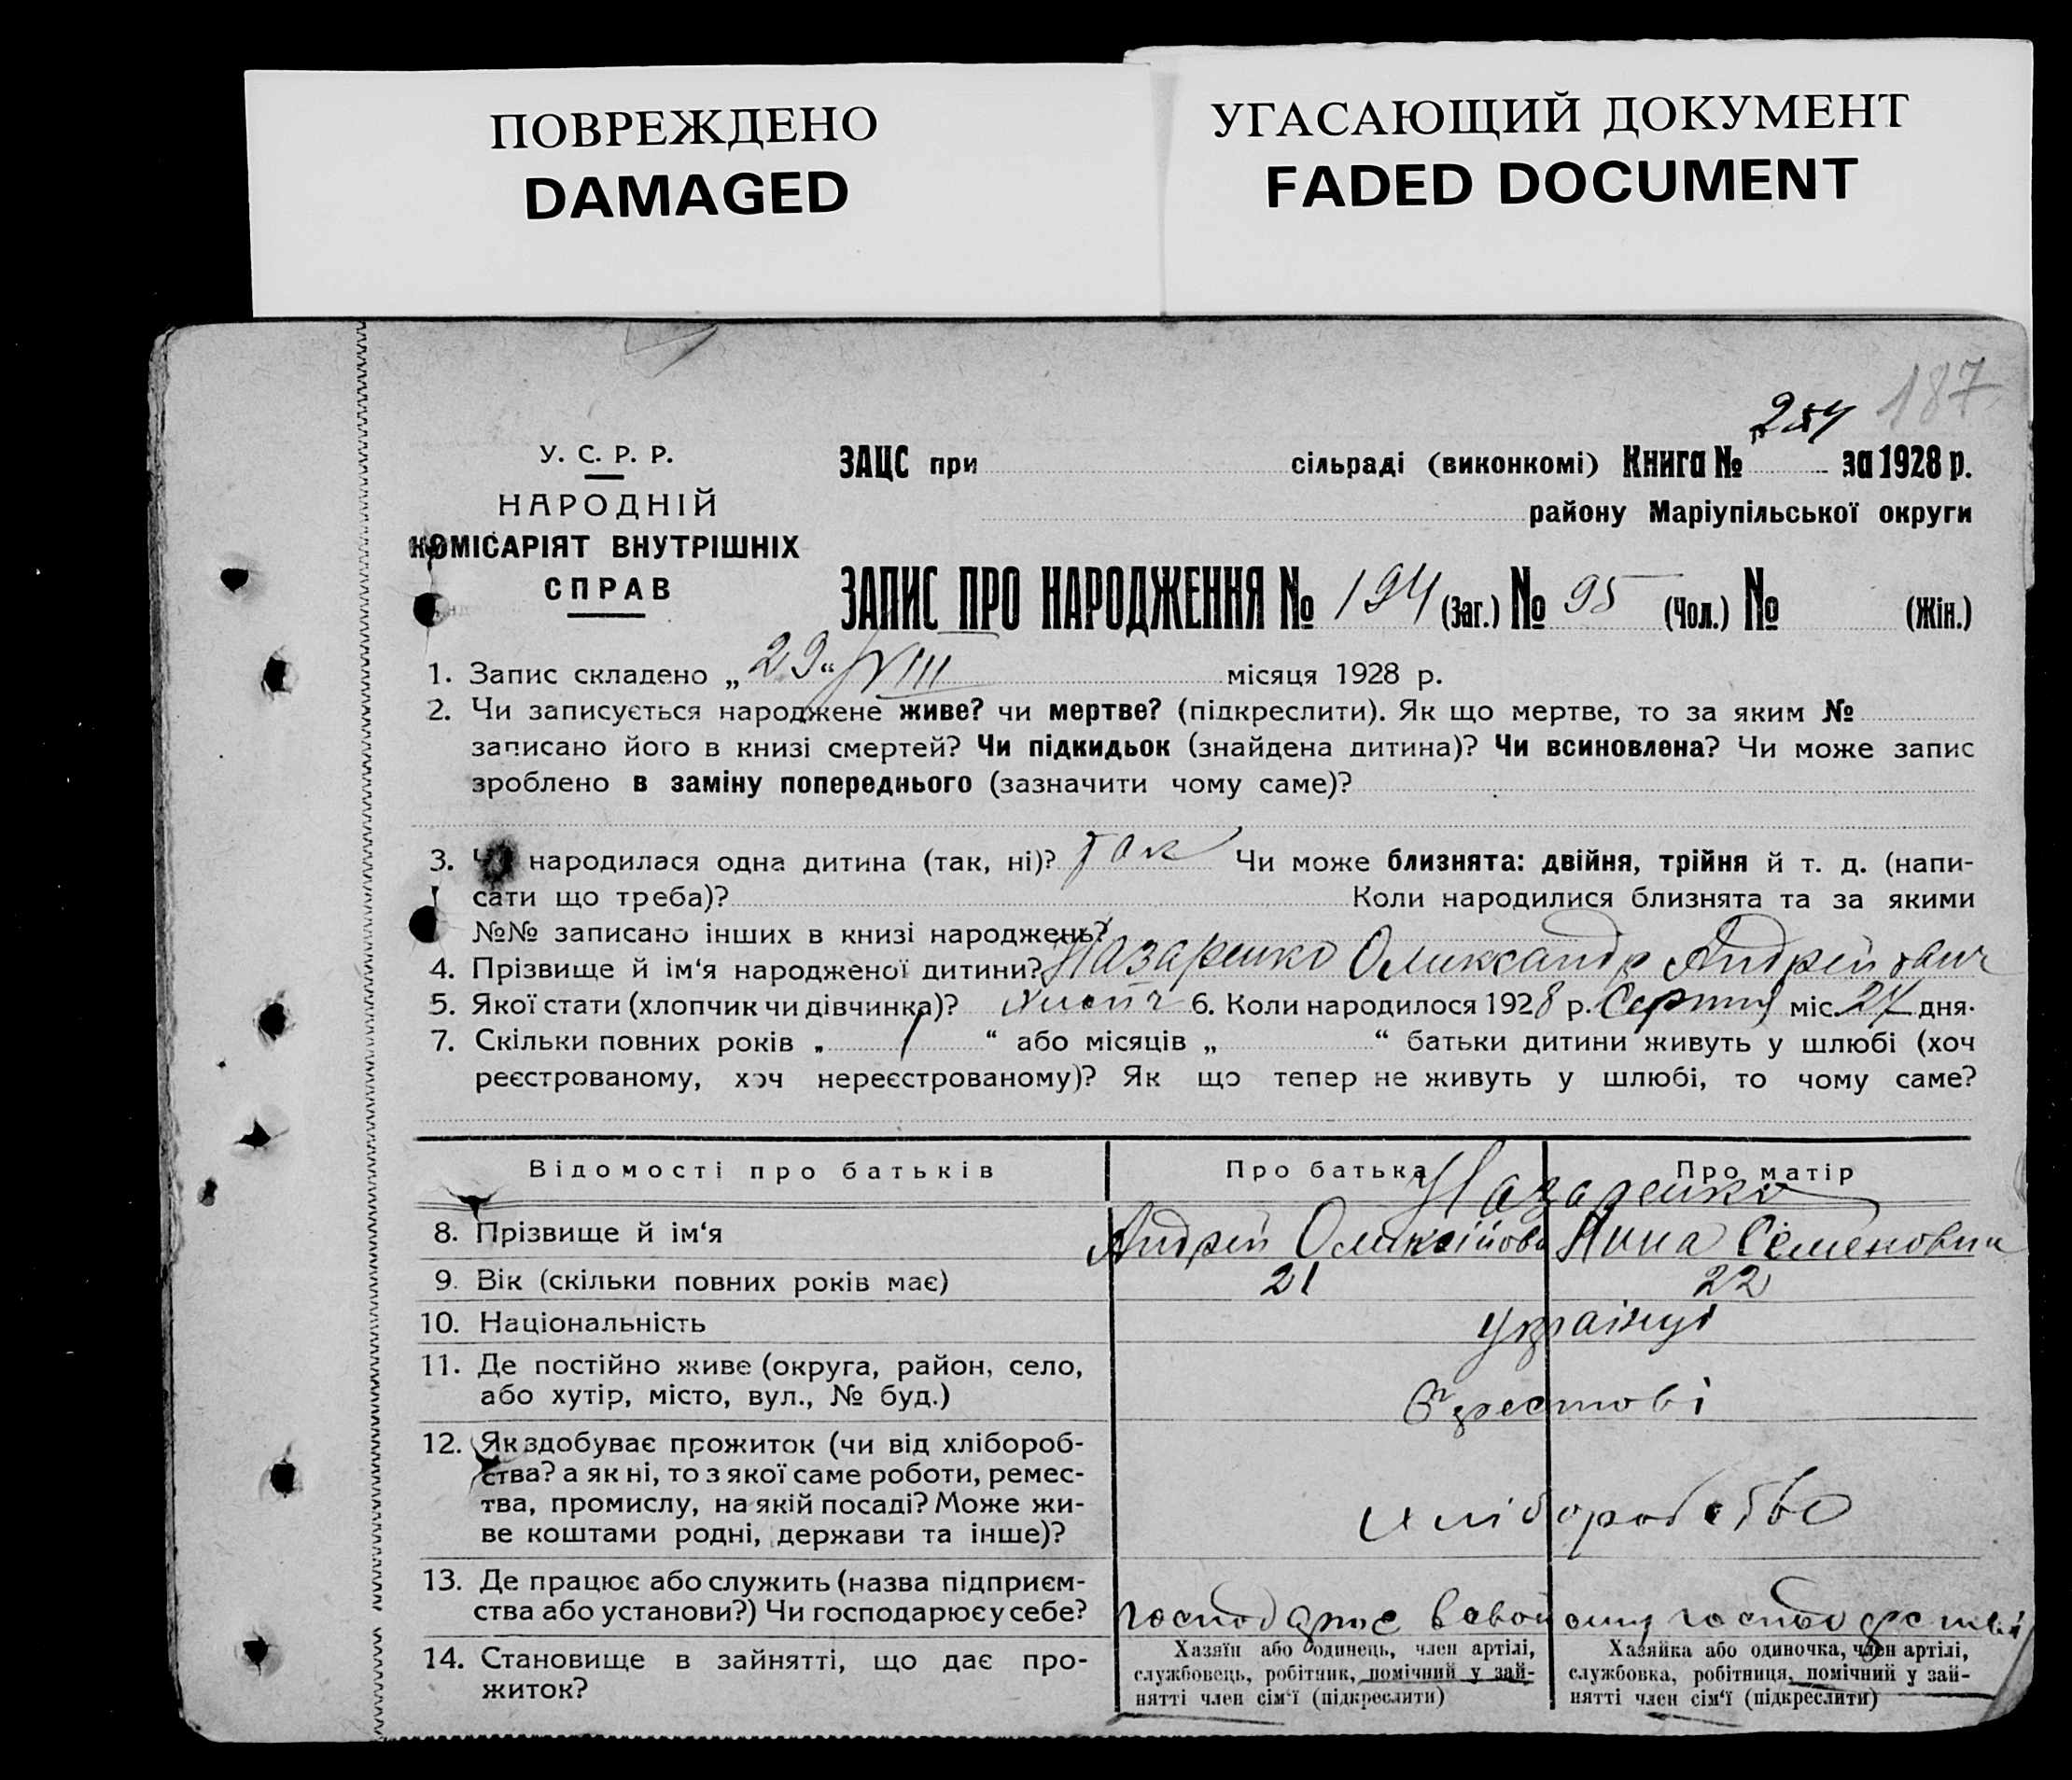 ПОВРЕЖДЕНО
DAMAGED
УГАСАЮЩИЙ ДОКУМЕНТ
FADED DOCUMENT
187
254
У. С. Р. Р.
НАРОДНІЙ
КОМІСАРІЯТ ВНУТРІШНІХ
СПРАВ
ЗАЦС при сільраді (виконкомі) Книга № за 1928 р.
району Маріупільської округи
ЗАПИС ПРО НАРОДЖЕННЯ № 194 (Заг.) № 95 (Чол.) № (Жін.)
1. Запис складено „29“ VIII місяця 1928 р.
2. Чи записується народжене живе? чи мертве? (підкреслити). Як що мертве, то за яким №
записано його в книзі смертей? Чи підкидьок (знайдена дитина)? Чи всиновлена? Чи може запис
зроблено в заміну попереднього (зазначити чому саме)?
3. Чи народилася одна дитина (так, ні)? так Чи може близнята: двійня, трійня й т. д. (напи-
сати що треба)? Коли народилися близнята та за якими
№№ записано інших в книзі народжень?
4. Прізвище й ім‘я народженої дитини? Назаренко Олександр Андрійович
5. Якої стати (хлопчик чи дівчинка)? хлопч 6. Коли народилося 1928 р. Серпня міс. 27 дня.
7. Скільки повних років „ 1 “ або місяців „ “ батьки дитини живуть у шлюбі (хоч
реєстрованому, хоч нереєстрованому)? Як що тепер не живуть у шлюбі, то чому саме?
Відомості про батьків Про батька Про матір
Назаренко
8. Прізвище й ім‘я Андрій Олексійови Нина Семеновни
9. Вік (скільки повних років має) 21 22
10. Національність українці
11. Де постійно живе (округа, район, село,
або хутір, місто, вул., № буд.)
12. Як здобуває прожиток (чи від хлібороб-
ства? а як ні, то з якої саме роботи, ремес-
тва, промислу, на якій посаді? Може жи-
ве коштами родні, держави та інше)?
хліборобство
13. Де працює або служить (назва підприєм-
ства або установи?) Чи господарює у себе?
господарює в свойому господарстві
14. Становище в зайнятті, що дає про-
житок?
Хазяїн або одинець, член артілі,
службовець, робітник, помічний у зай-
нятті член сім‘ї (підкреслити)
Хазяйка або одиночка, член артілі,
службовка, робітниця, помічний у зай-
нятті член сім‘ї (підкреслити)